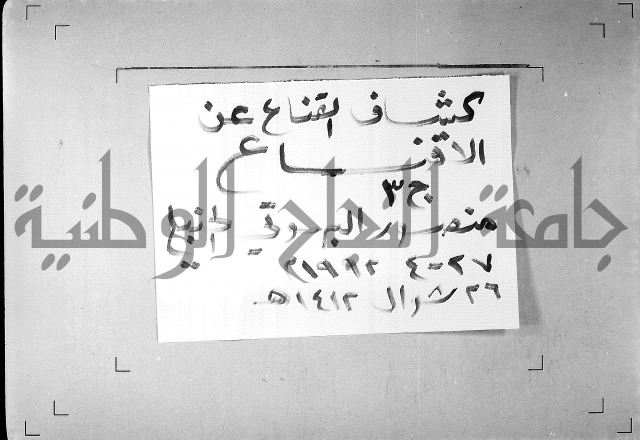 كشاف القناع عن
الاقناع
ج ٣
منصور البهوتي
٢٧ - ٤ - ١٩٩٢م
٢٦ شوال ١٤١٢هـ
جامعة النجاح الوطنية